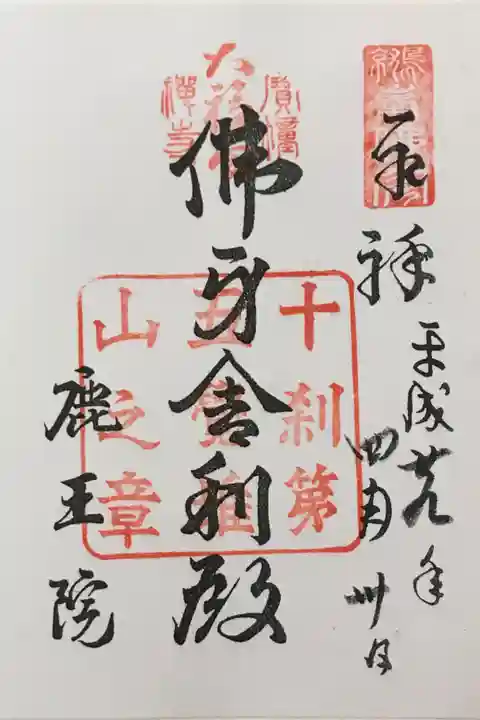 奉拝
平成廿九年
四月卅日
佛牙舎利殿
鹿王院
寶幢
大福田
禪寺
十刹第
五覺雄
山之章